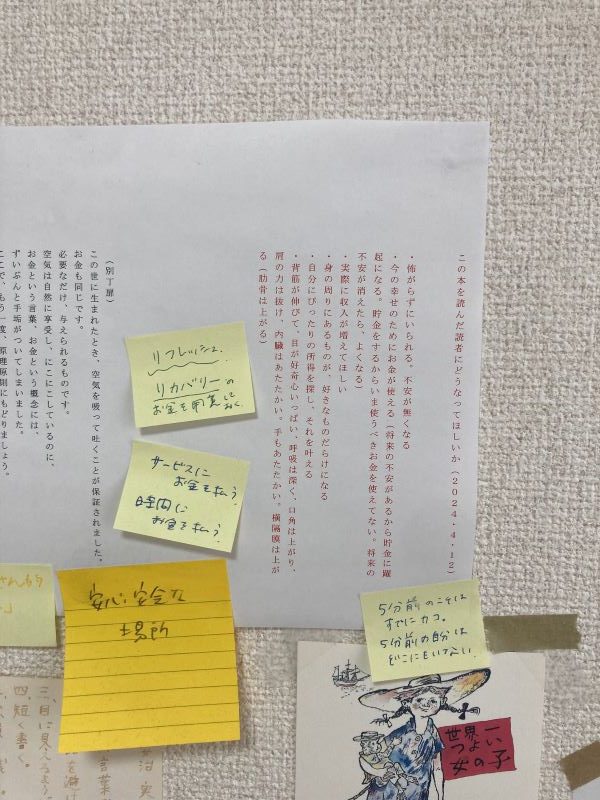 この本を読んだ読者にどうなってほしいか（2024・4・12）
・怖がらずにいられる。不安が無くなる
・今の幸せのためにお金が使える（将来の不安があるから貯金に躍
起になる。貯金をするからいま使うべきお金を使えてない。将来の
不安が消えたら、よくなる）
・実際に収入が増えてほしい
・身の周りにあるものが、好きなものだらけになる
・自分にぴったりの所得を探し、それを叶える
・背筋が伸びて、目が好奇心いっぱい、呼吸は深く、口角は上がり、
肩の力は抜け、内臓はあたたかい。手もあたたかい。横隔膜は上が
る（肋骨は上がる）
（別丁扉）
この世に生まれたとき、空気を吸って吐くことが保証されました。
お金も同じです。
必要なだけ、与えられるものです。
空気は自然に享受し、にこにこしているのに、
お金という言葉、お金という概念には、
ずいぶんと手垢がついてしまいました。
ここで、もう一度、原理原則にもどりましょう。
リフレッシュ、
リカバリーの
お金を用意しておく。
サービスに
お金を払う
時間に
お金を払う
安心・安全な
場所
5分前のことは
すでにカコ。
5分前の自分は
どこにもいない。
世界一
つよい
女の子
三、目に見えるよう
四、短く書く。